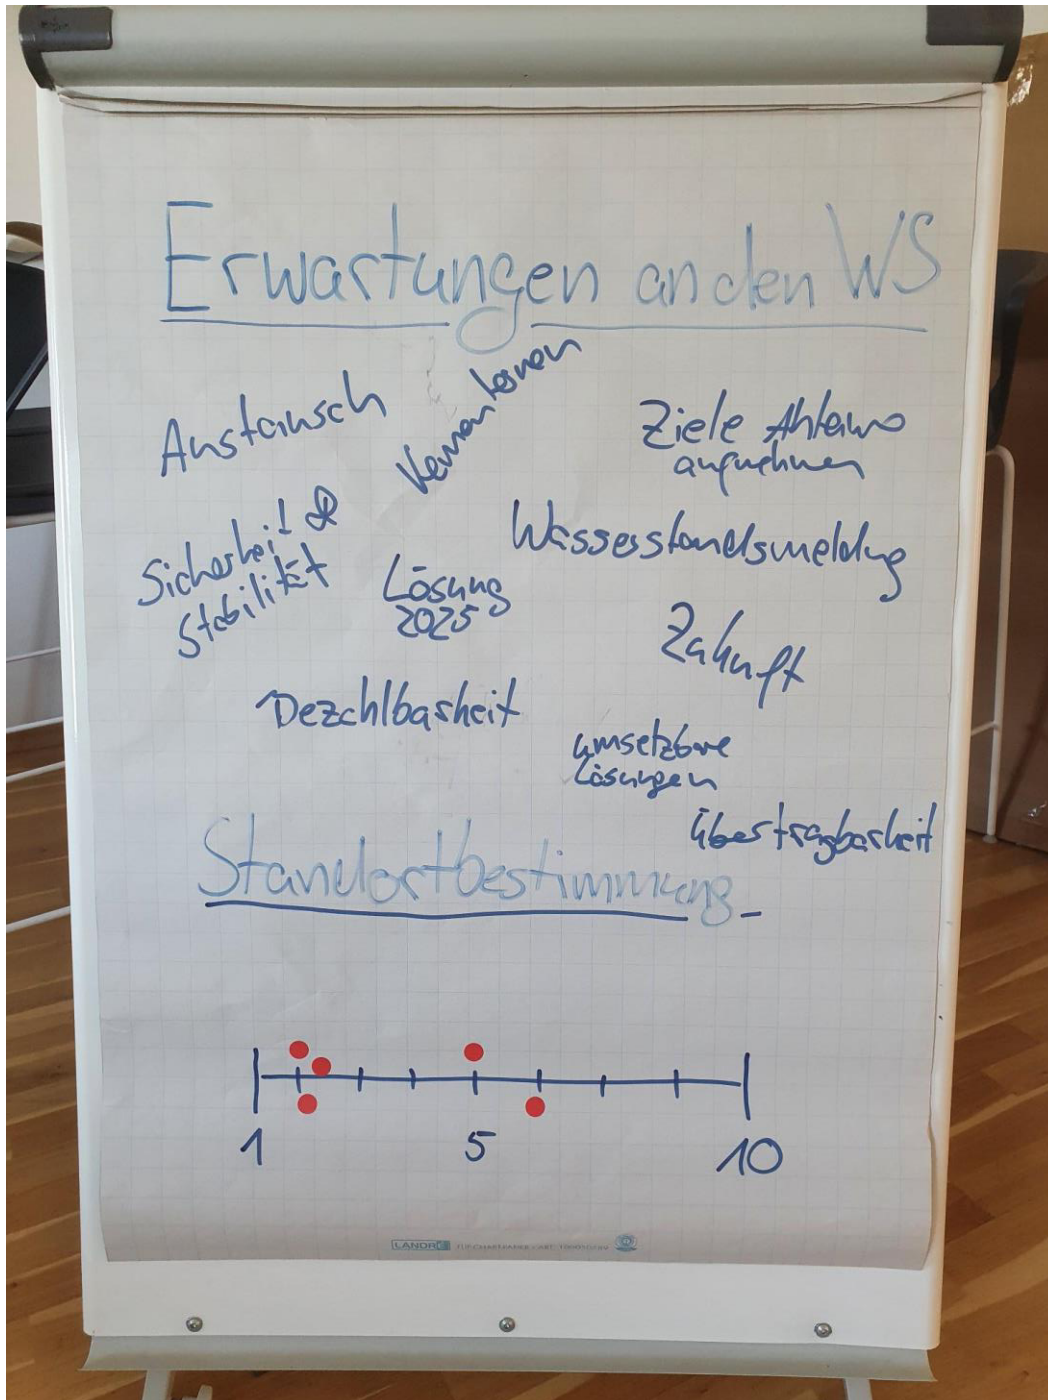 Erwartungen an den WS
Austausch
Kennenlernen
Ziele
aufnehmen
Sicherheit &
Stabilität
Wasserstandsmeldung
Lösung
2025
Zukunft
Bezahlbarkeit
umsetzbare
Lösungen
Übertragbarkeit
Standortbestimmung
1 5 10
LANDRÉ